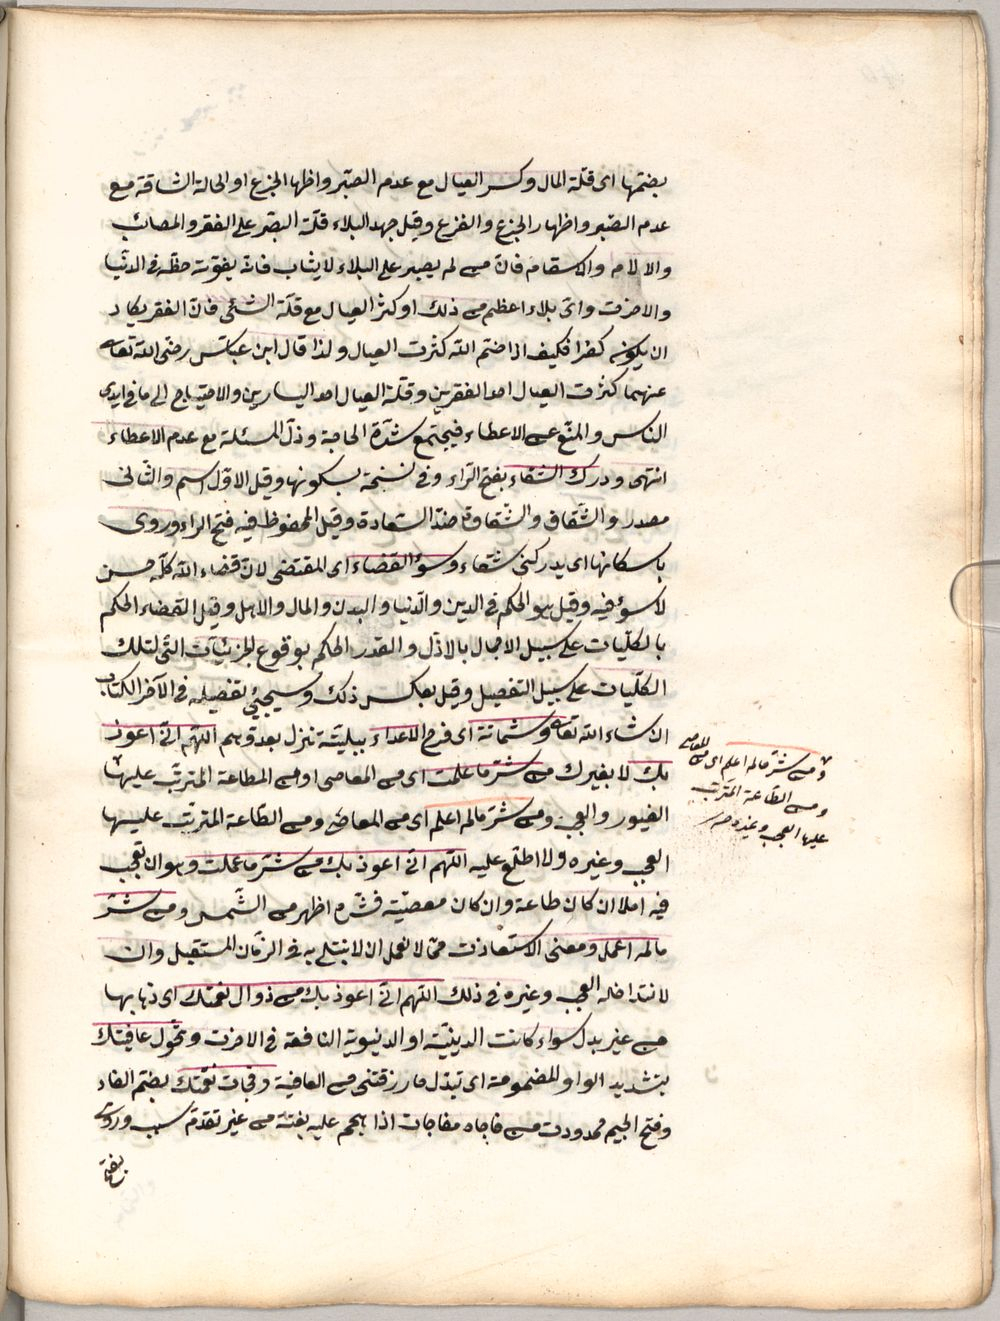 بضمها اى قلة المال وكسر العيال مع عدم الصبر واظهار الجزع او الحالة الشاقة مع
عدم الصبر واظهار الجزع والفزع وقيل جهد البلاء قلة الصبر على الفقر والمصائب
والالام والاسقام فان من لم يصبر على البلاء لا يثاب فانه يفوته حظه فى الدنيا
والاخرت واى بلاء اعظم من ذلك او كثر العيال مع قلة الشئ فان الفقر يكاد
ان يكون كفرا فكيف اذا ضم الله كثرت العيال ولذا قال ابن عباس رضى الله تعا
عنهما كثرت العيال احد الفقرين وقلة العيال احد اليسارين والاحتياج الى ما فى ايدى
الناس والمنع عن الاعطاء فيجتمع شدة الحاجة وذل المسئلة مع عدم الاعطاء
انتهى ودرك الشقاء بفتح الراء وفى نسخة بسكونها وقيل الاول اسم والثانى
مصدر والشقاق والشقاوة ضد السعادة وقيل المحفوظ فيه فتح الراء وروى
باسكانها اى يدركنى شقاء وسوء القضاء اى المقتضى لان قضاء الله كله حسن
لا سوء فيه وقيل هو الحكم فى الدين والدنيا والبدن والمال والاهل وقيل القضاء الحكم
بالكليات على سبيل الاجمال بالازل والقدر الحكم بوقوع الجزئيات التى لتلك
الكليات على سبيل التفصيل وقيل بعكس ذلك وسيجئ تفصيله فى الآخر الكتاب
ان شاء الله تعا وشماتة اى فرح الاعداء ببلية تنزل بعدوهم اللهم انى اعوذ
بك لا بغيرك من شر ما علمت اى من المعاصى او من المطاعة المترتب عليها
الغيور والعجب ومن شر ما لم اعلم اى من المعاصى ومن الطاعة المترتب عليها
العجب وغيره ولا اطلع عليه اللهم انى اعوذ بك من شر ما عملت وهو ان تعجب
فيه املا ان كان طاعة وان كان معصية فشره اظهر من الشمس ومن شر
ما لم اعمل ومعنى الاستعاذت مما لا نعمل ان لا نبتلى به فى الزمان المستقبل وان
لا نتداخله العجب وغيره فى ذلك اللهم انى اعوذ بك من زوال نعمتك اى ذهابها
من غير بدل سواء كانت الدينية او الدنيوية النافعة فى الاخرت وتحول عافيتك
بتشديد الواو المضمومة اى تبدل ما رزقتنى من العافية وفجات نقمتك بضم الفاء
وفتح الجيم ممدودت من فاجاه مفاجات اذا هجم عليه بغتة من غير تقدم سبب وروى
بفتح
ومن شر ما لم اعلم اى من المعاصى
ومن الطاعة المترتب
عليها العجب وغيره